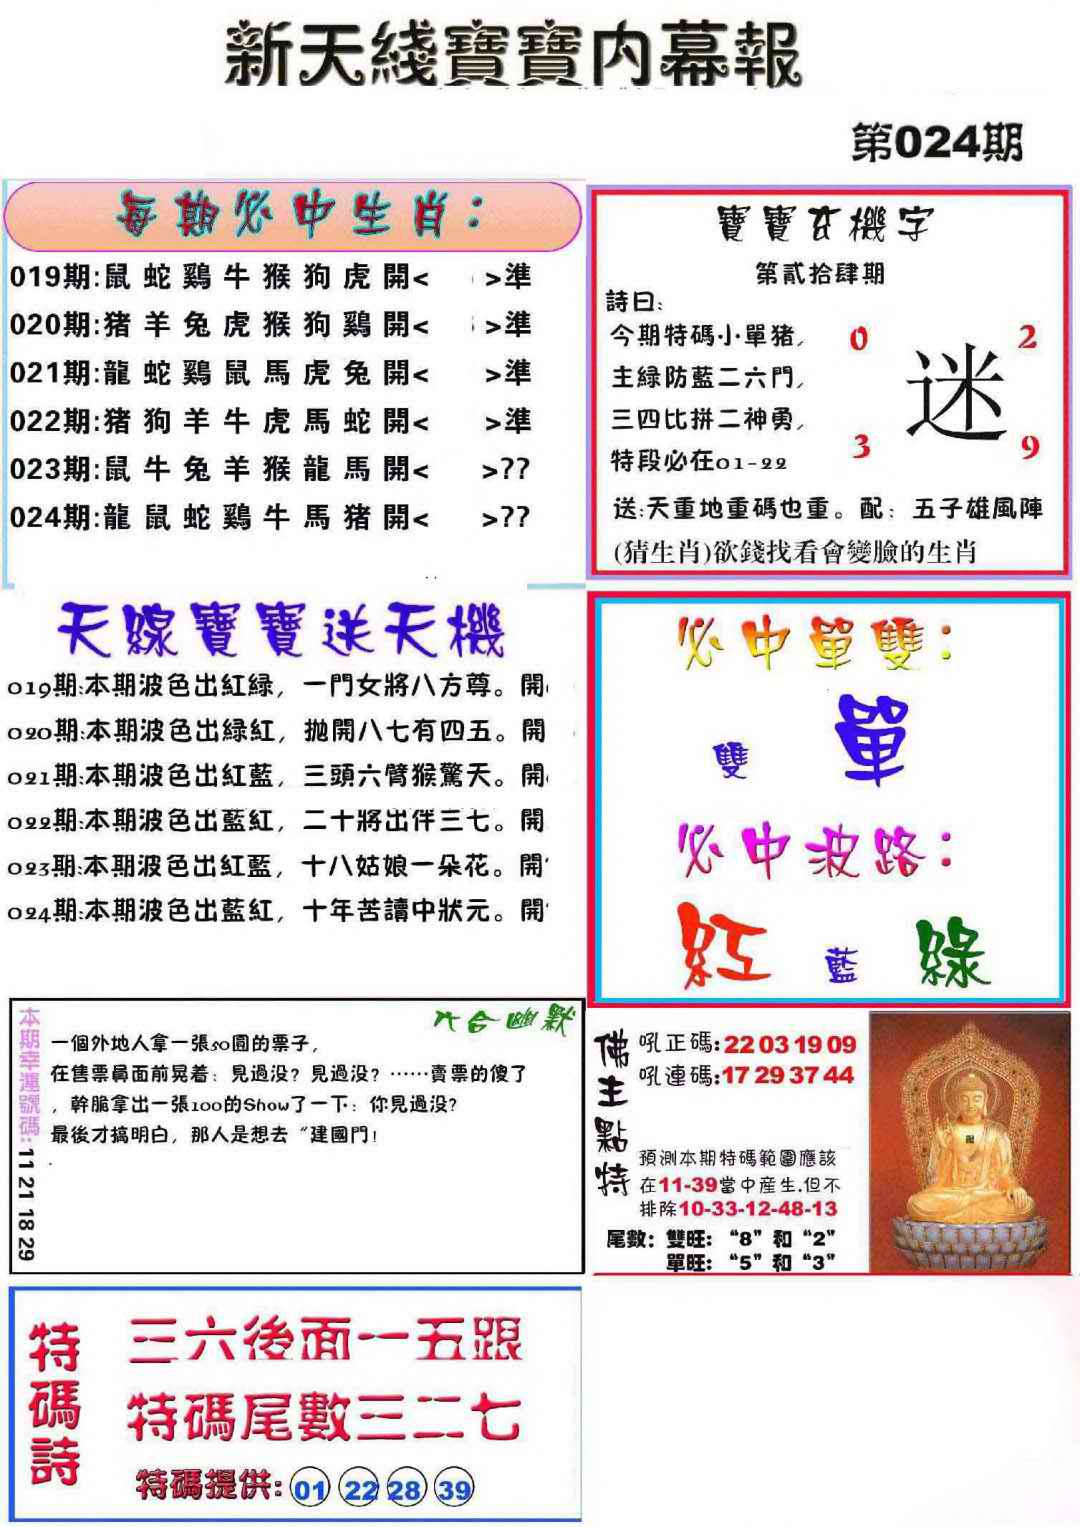 新天綫寶寶内幕報
第024期
每期必中生肖：
019期:鼠 蛇 鷄 牛 猴 狗 虎 開< >準
020期:猪 羊 兔 虎 猴 狗 鷄 開< >準
021期:龍 蛇 鷄 鼠 馬 虎 兔 開< >準
022期:猪 狗 羊 牛 虎 馬 蛇 開< >準
023期:鼠 牛 兔 羊 猴 龍 馬 開< >??
024期:龍 鼠 蛇 鷄 牛 馬 猪 開< >??
寶寶玄機字
第貳拾肆期
詩曰：
今期特碼小單猪，
主綠防藍二六門，
三四比拼二神勇，
特段必在01-22
0 2
迷
3 9
送：天重地重碼也重。配：五子雄風陣
(猜生肖)欲錢找看會變臉的生肖
天線寶寶送天機
019期:本期波色出紅緑，一門女將八方尊。開
020期:本期波色出緑紅，抛開八七有四五。開
021期:本期波色出紅藍，三頭六臂猴驚天。開
022期:本期波色出藍紅，二十將出伴三七。開
023期:本期波色出紅藍，十八姑娘一朵花。開
024期:本期波色出藍紅，十年苦讀中狀元。開
必中單雙：
雙 單
必中波路：
紅 藍 綠
六合幽默
本期幸運號碼:11 21 18 29
一個外地人拿一張50圓的票子，
在售票員面前晃着：見過没？見過没？……賣票的傻了
，幹脆拿出一張100的Show了一下：你見過没？
最後才搞明白，那人是想去“建國門！
佛主點特
吼正碼:22 03 19 09
吼連碼:17 29 37 44
預測本期特碼範圍應該
在11-39當中産生.但不
排除10-33-12-48-13
尾數：雙旺：“8”和“2”
單旺：“5”和“3”
特碼詩
三六後面一五跟
特碼尾數三二七
特碼提供: 01 22 28 39